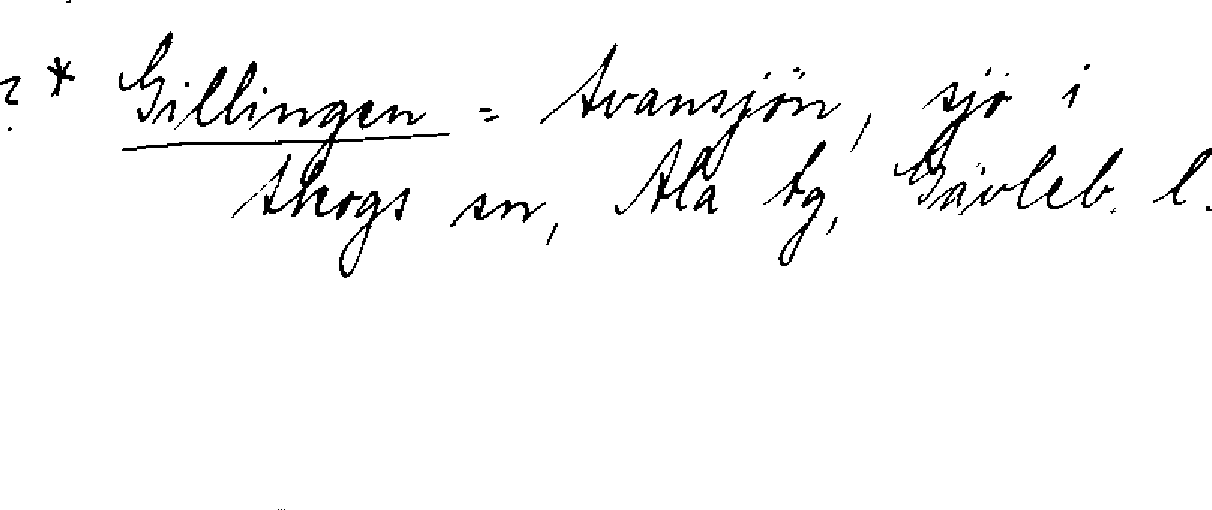 ? * Gillingen = Svansjön, sjö i
Skogs sn, Ala tg, Gävleb. l.